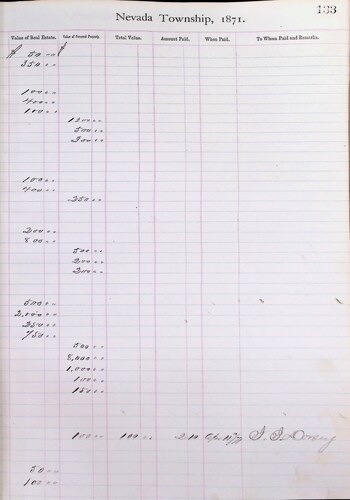 133
Nevada Township, 1871.
Value of Real Estate. Value of Personal Property. Total Value. Amount Paid. When Paid. To Whom Paid and Remarks.
$ 50 00 $
350 00
100 00
400 00
100 00
1200 00
500 00
300 00
100 00
400 00
250 00
200 00
800 00
500 00
200 00
200 00
500 00
2,000 00
250 00
750 00
500 00
8,000 00
1,000 00
100 00
150 00
100 00 100 00 2 10
50 00
100 00